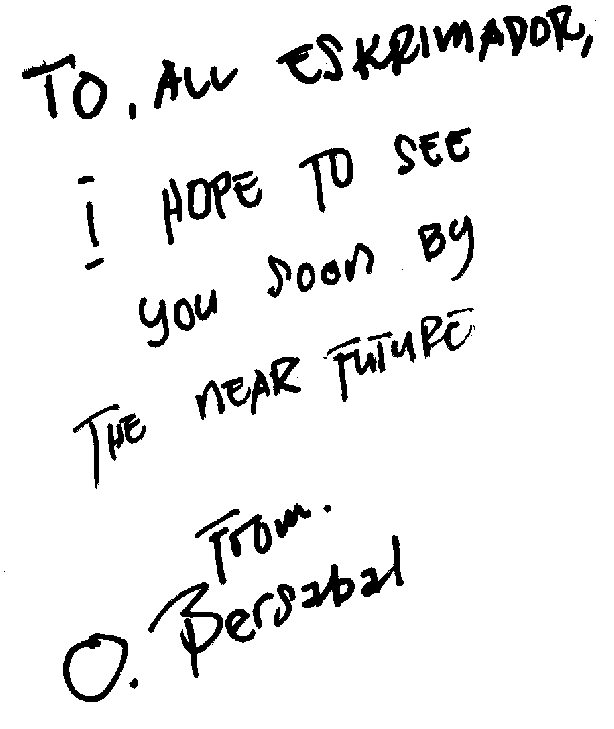 TO, ALL ESKRIMADOR,
I HOPE TO SEE
YOU SOON BY
THE NEAR FUTURE
From.
O. Bersabal